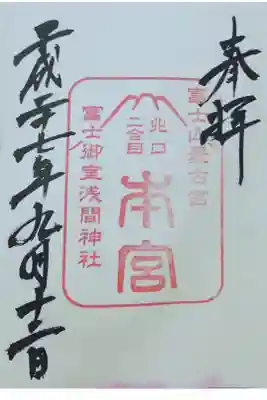 奉拝
富士山最古宮
北口
二合目
本宮
富士御室浅間神社
平成二十七年九月十三日